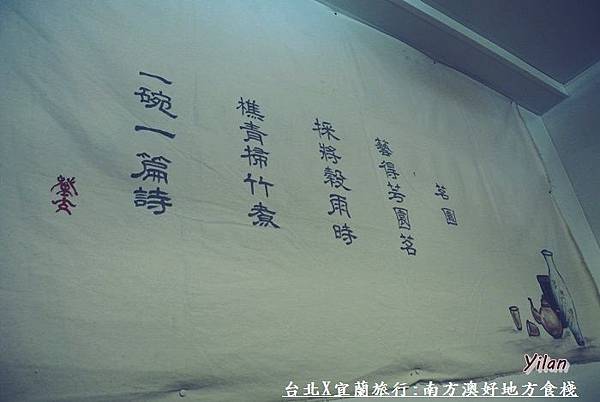 茗園
藝得芳園茗
採將穀雨時
樵青掃竹煮
一碗一篇詩
Yilan
台北X宜蘭旅行:南方澳好地方食棧